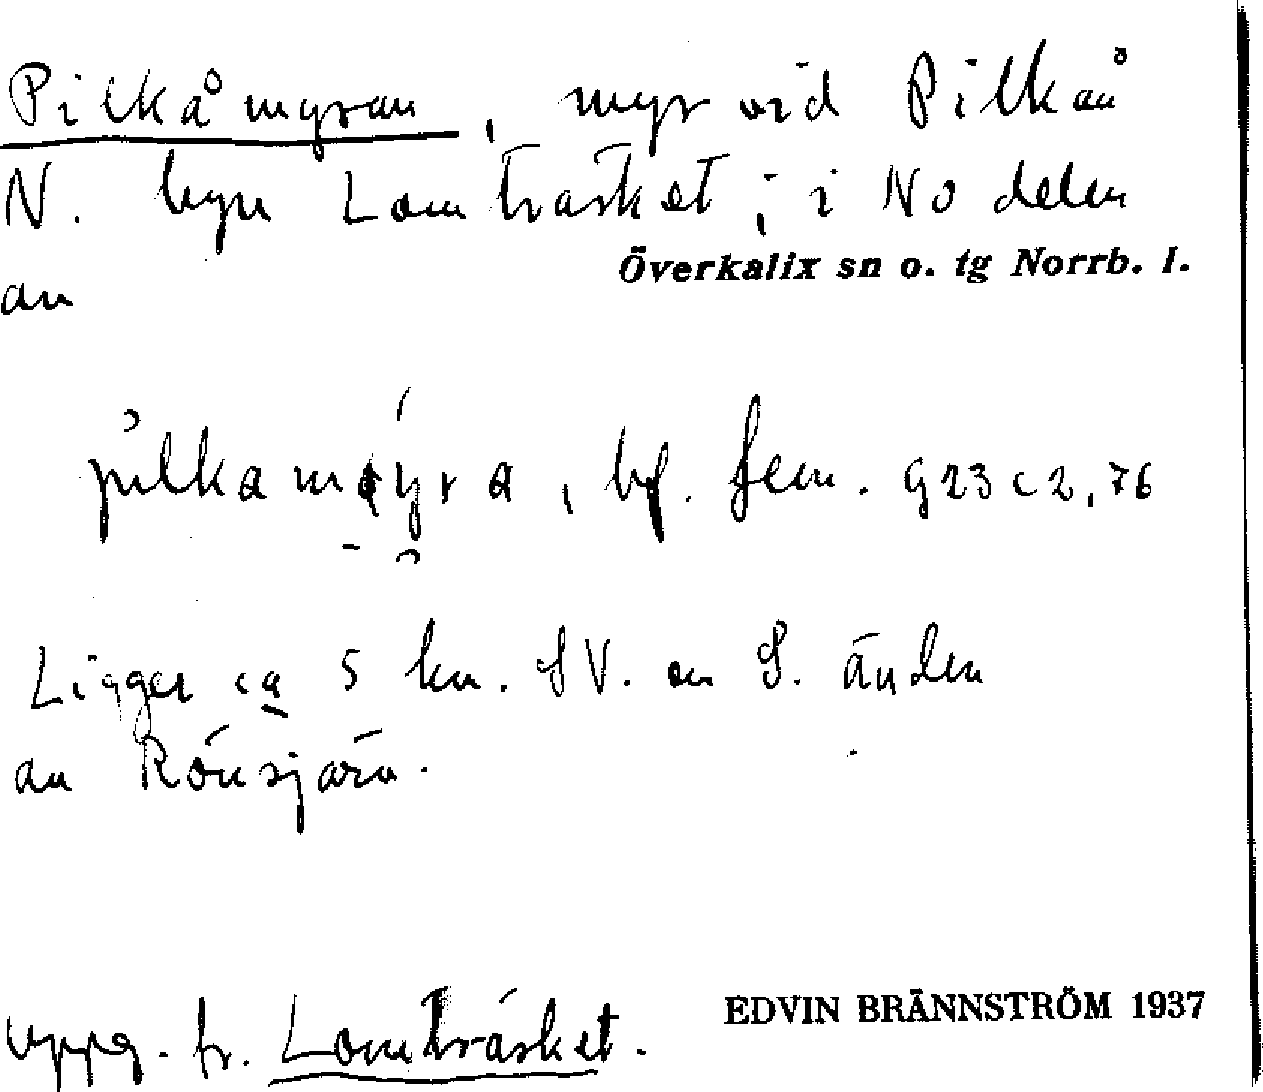 Pilkåmyran, myr vid Pilkån
N. byn Lomträsket; i No delen
av
Överkalix sn o. tg Norrb. l.
pilkamyra, bf. fem. G 23 c 2, 76
Ligger ca 5 km. SV. om S. änden
av Rönsjärv.
uppg. fr. Lomträsket.
EDVIN BRÄNNSTRÖM 1937